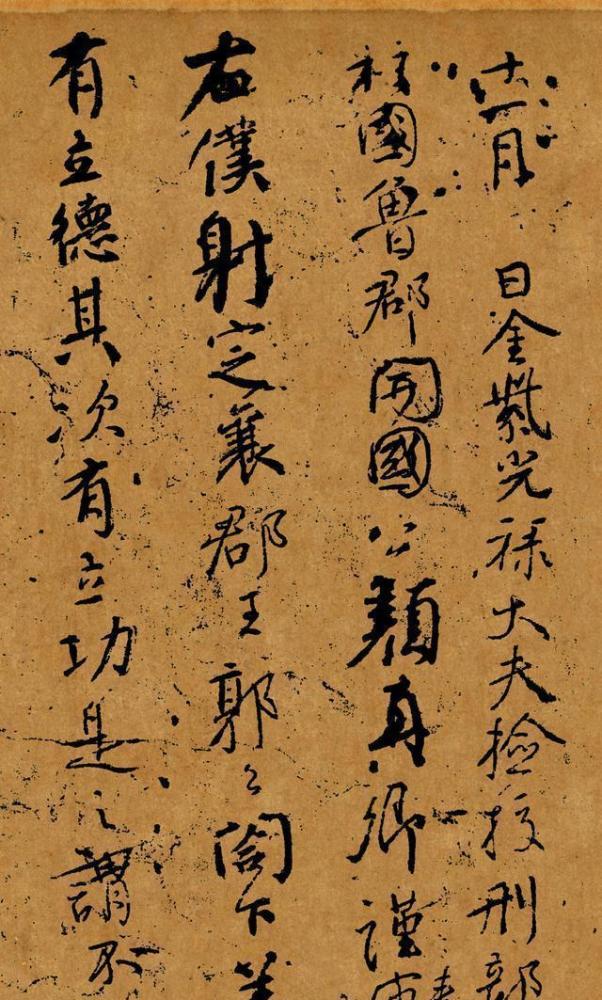 十一月 日金紫光祿大夫檢校刑部
柱國魯郡開國公顏真卿謹
右僕射定襄郡王郭公閤下
有立德其次有立功是之謂不